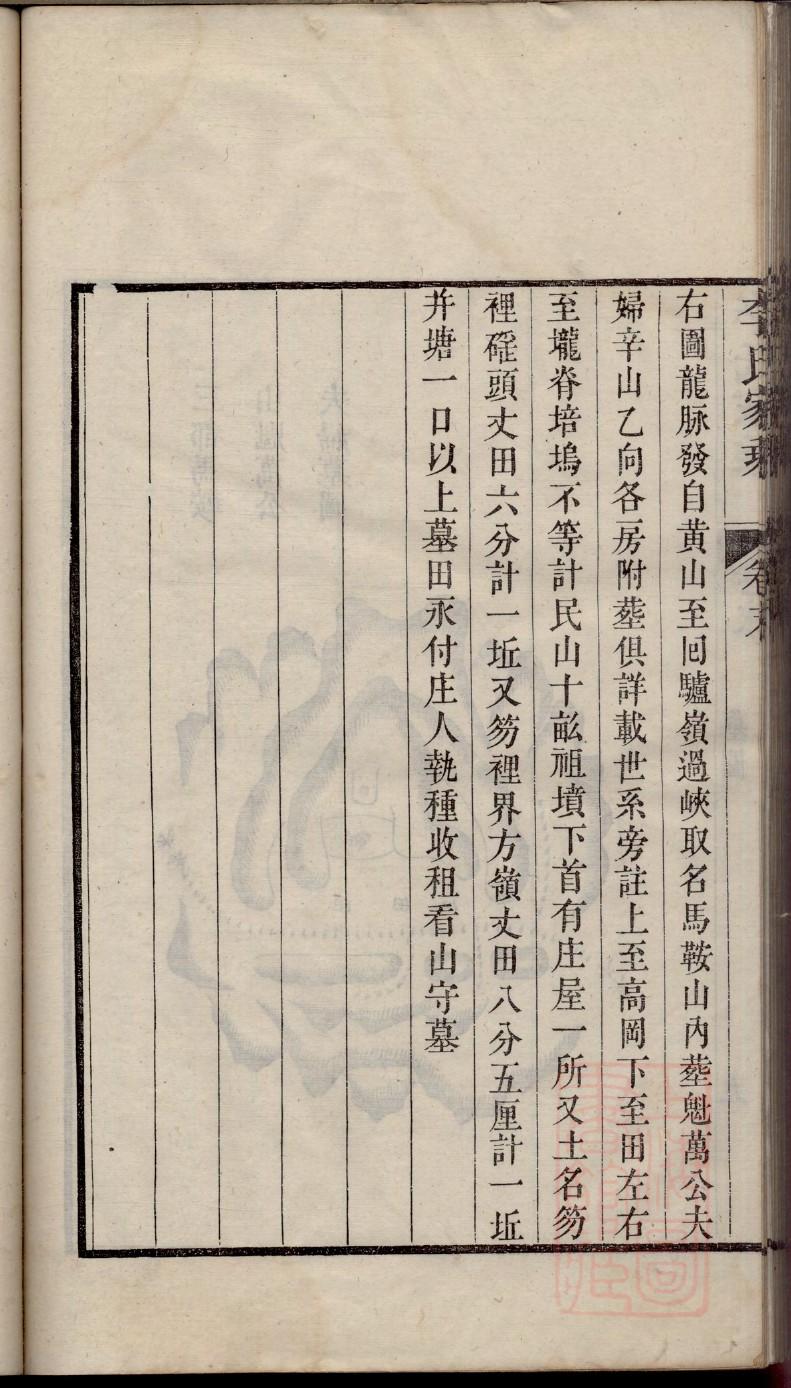 李氏家乘
卷末
右圖龍脉發自黄山至囘驢嶺過峽取名馬鞍山內塟魁萬公夫
婦辛山乙向各房附塟俱詳載世系旁註上至高岡下至田左右
至壠脊培塢不等計民山十畝祖墳下首有庄屋一所又土名笏
裡碓頭丈田六分計一坵又笏裡界方嶺丈田八分五厘計一坵
并塘一口以上墓田永付庄人執種收租看山守墓